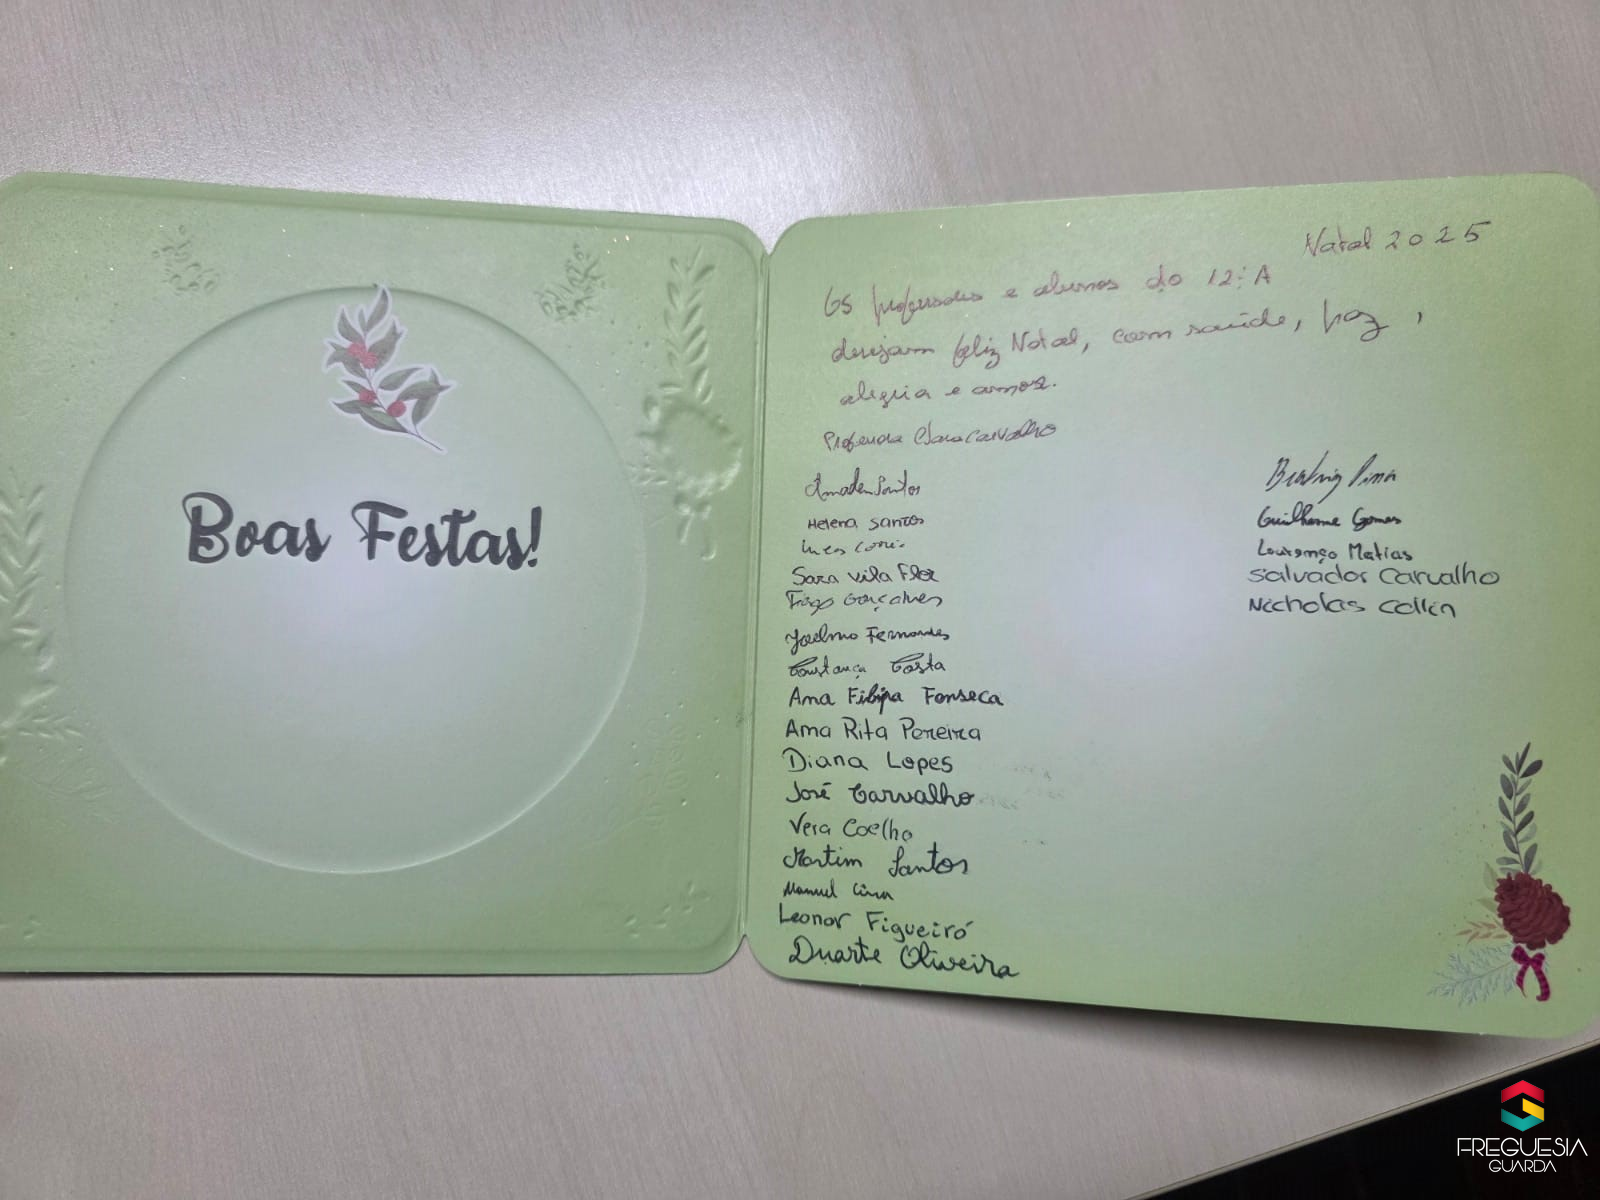 Boas Festas!
Natal 2025
Os professores e alunos do 12.º A
desejam feliz Natal, com saúde, paz,
alegria e amor.
Professora Clara Carvalho
Santos
Helena Santos
Sara Vila Flor
Tiago Gonçalves
Fernandes
Constança Costa
Ana Filipa Fonseca
Ana Rita Pereira
Diana Lopes
José Carvalho
Vera Coelho
Martim Santos
Manuel
Leonor Figueiró
Duarte Oliveira
Beatriz
Guilherme Gomes
Lourenço Matias
Salvador Carvalho
Nicholas Collin
FREGUESIA
GUARDA